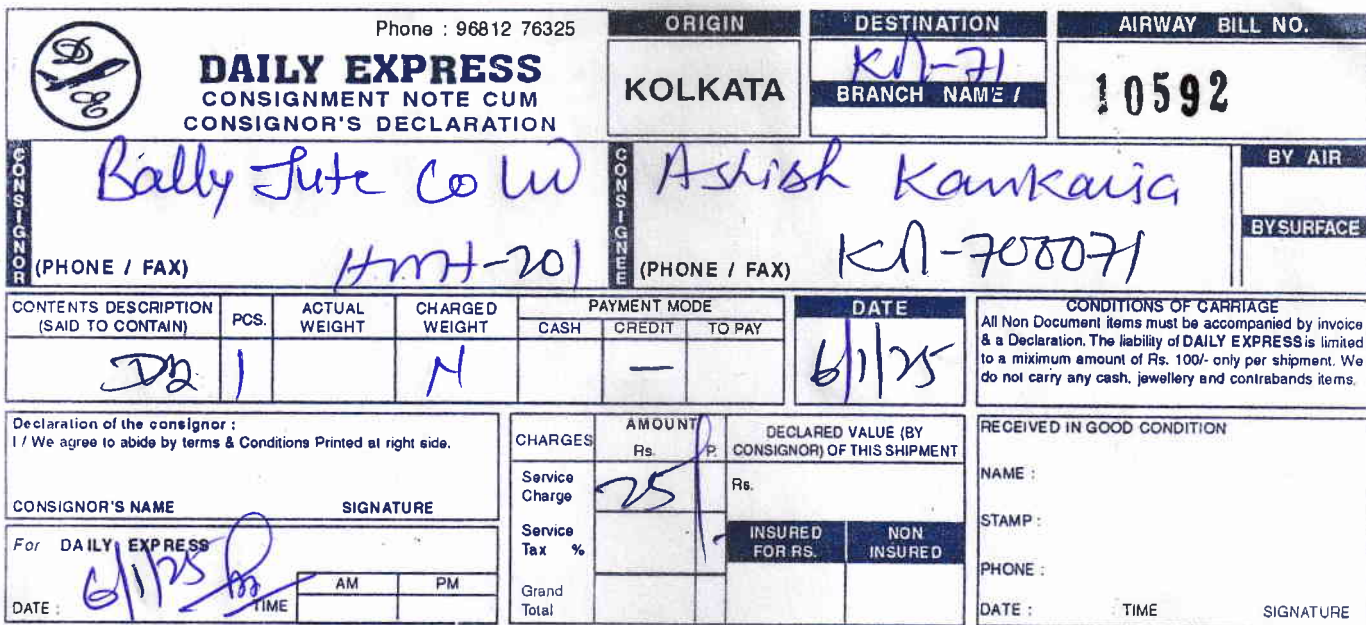 Phone : 96812 76325
DAILY EXPRESS
CONSIGNMENT NOTE CUM
CONSIGNOR'S DECLARATION
ORIGIN
KOLKATA
DESTINATION
-71
BRANCH NAME /
AIRWAY BILL NO.
10592
CONSIGNOR
Bally Jute Co
(PHONE / FAX)
HMH-201
CONSIGNEE
Ashish Kankaria
(PHONE / FAX)
-700071
BY AIR
BY SURFACE
CONTENTS DESCRIPTION
(SAID TO CONTAIN)
PCS.
1
ACTUAL
WEIGHT
CHARGED
WEIGHT
N
PAYMENT MODE
CASH CREDIT TO PAY
—
DATE
6/1/25
CONDITIONS OF CARRIAGE
All Non Document items must be accompanied by invoice
& a Declaration. The liability of DAILY EXPRESS is limited
to a miximum amount of Rs. 100/- only per shipment. We
do not carry any cash, jewellery and contrabands items.
Declaration of the consignor :
I / We agree to abide by terms & Conditions Printed at right side.
CONSIGNOR'S NAME SIGNATURE
For DAILY EXPRESS
6/1/25
DATE : TIME
AM PM
CHARGES
AMOUNT
Rs. P.
Service
Charge
25
Service
Tax %
Grand
Total
DECLARED VALUE (BY
CONSIGNOR) OF THIS SHIPMENT
Rs.
INSURED
FOR RS.
NON
INSURED
RECEIVED IN GOOD CONDITION
NAME :
STAMP :
PHONE :
DATE : TIME SIGNATURE